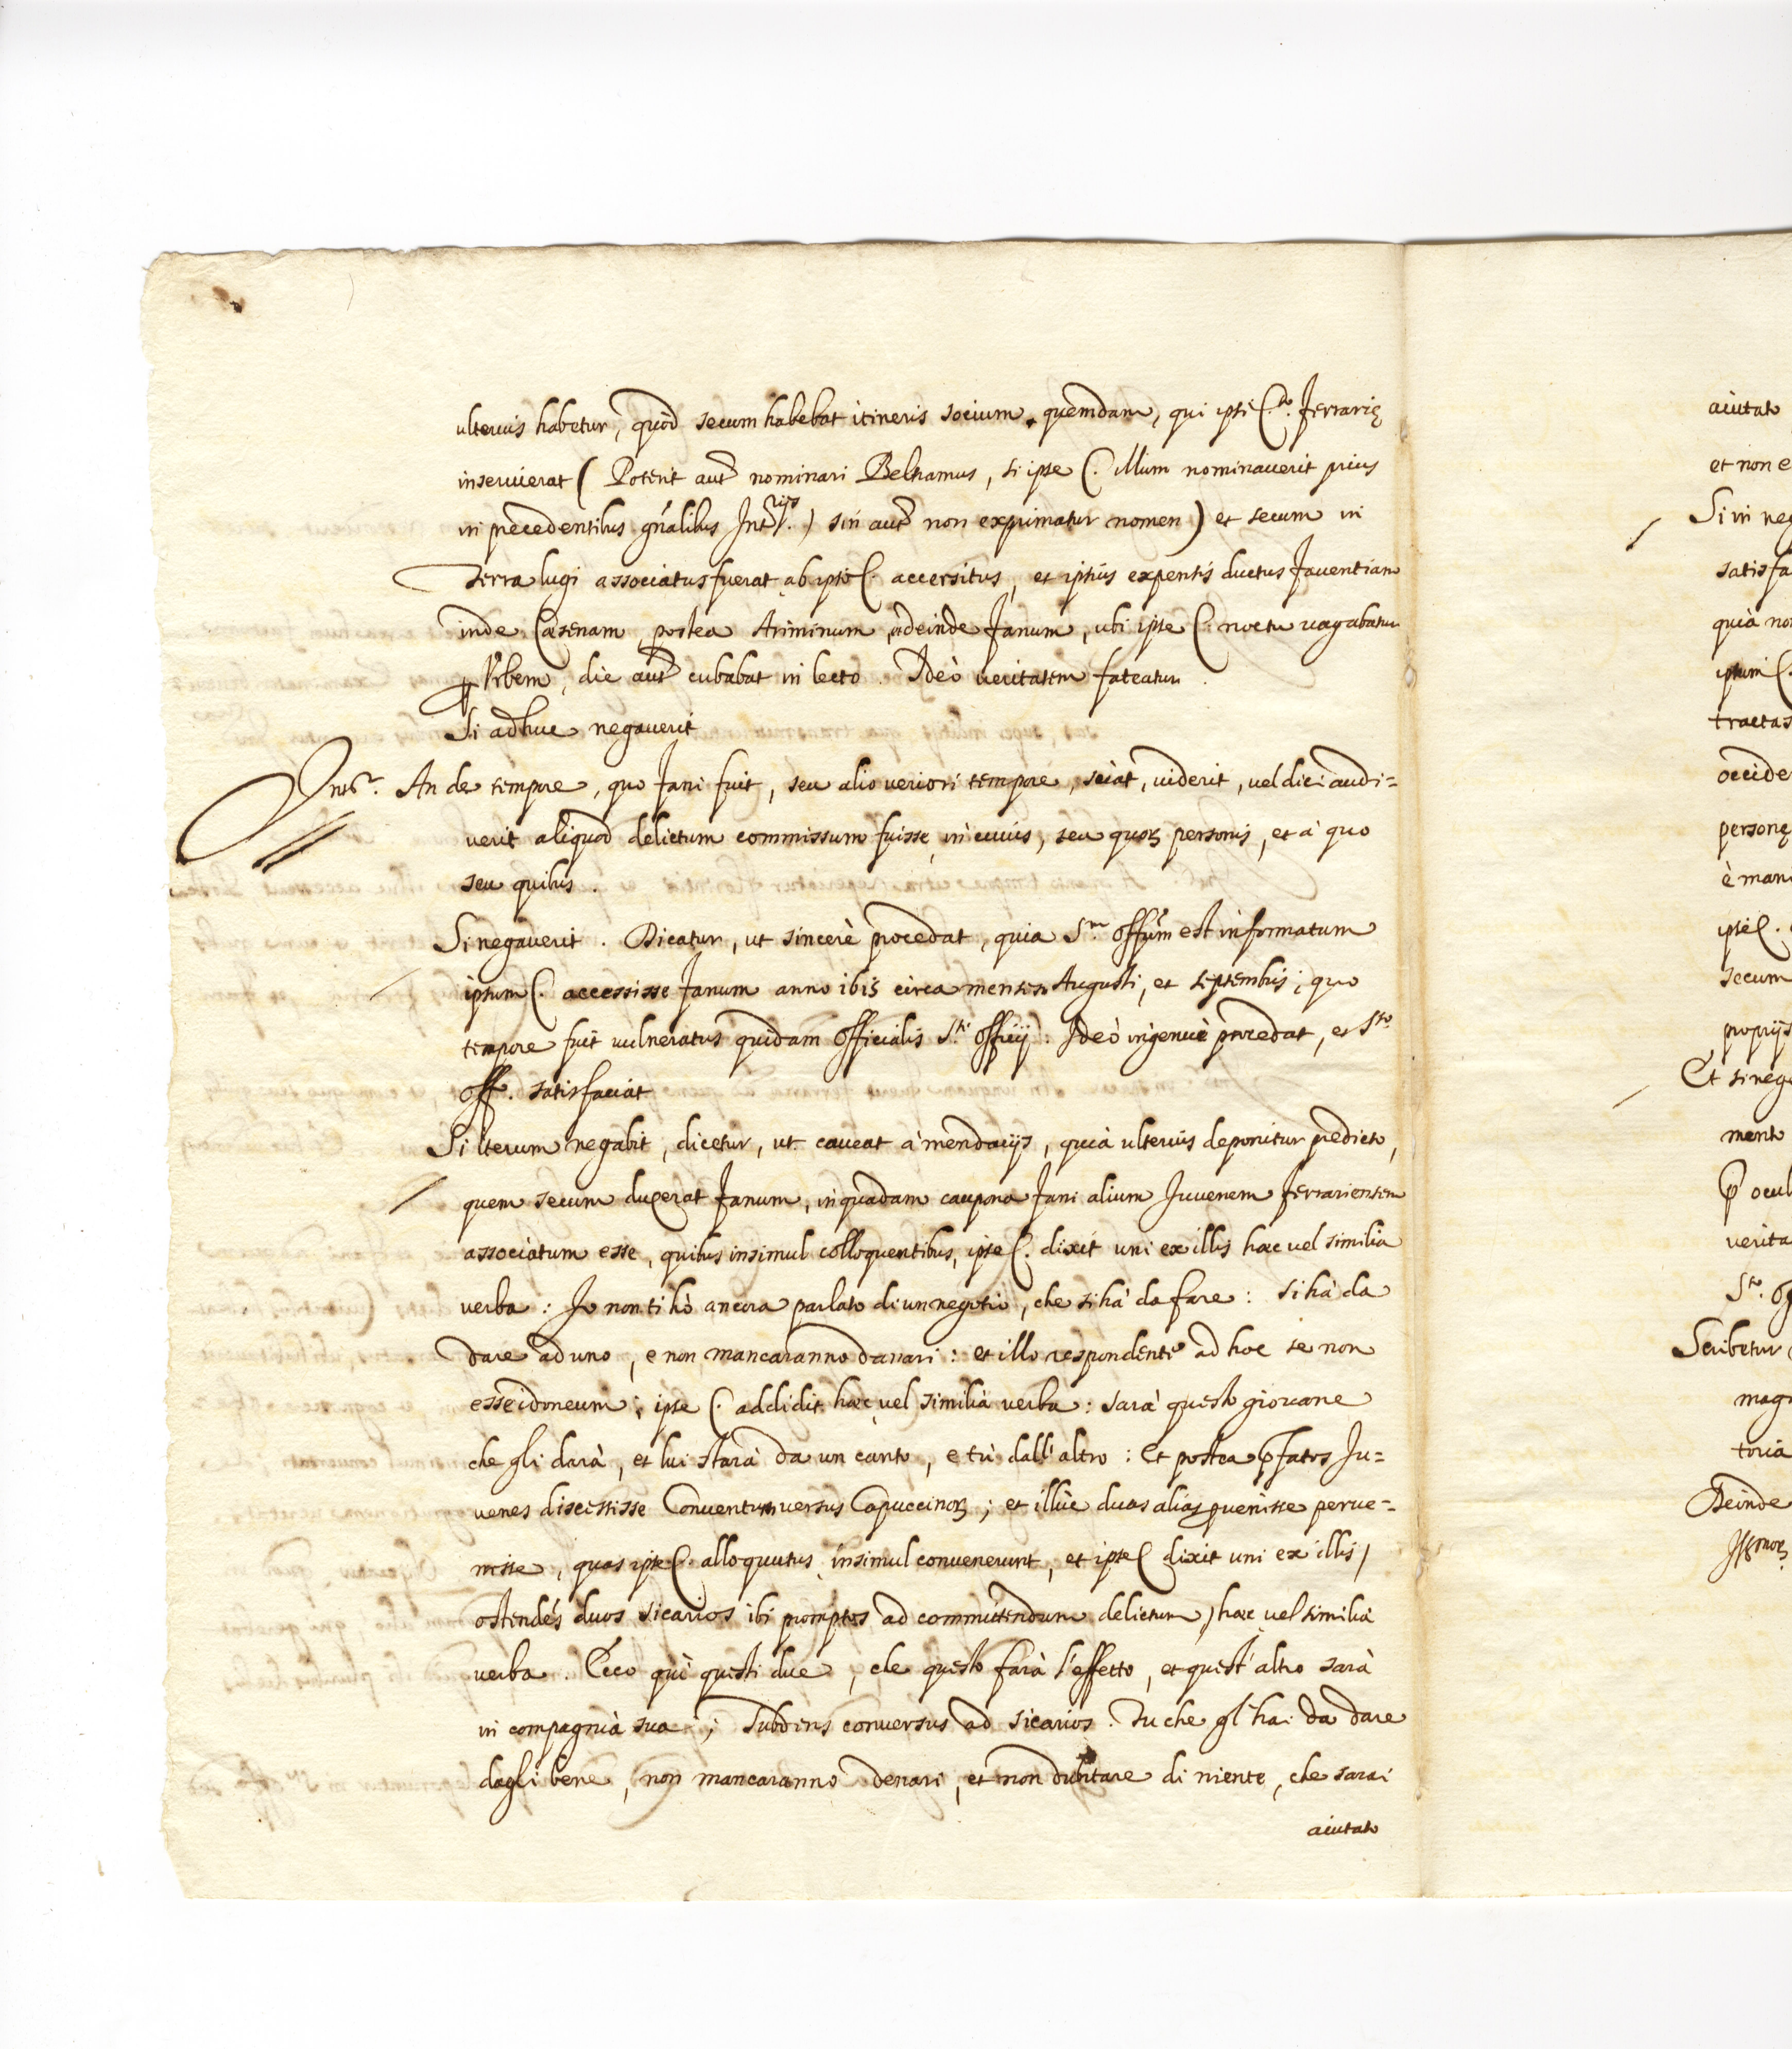 ulterius habetur, quod secum habebat itineris socium quemdam, qui ipsi C.do Ferrarię
inseruierat ( Poterit aut nominari Beltramus, si ipse C. illum nominauerit prius
in precedentibus gñalibus Intrijs. ) sin aut non exprimatur nomen ) et secum in
Terra lugi associatus fuerat ab ipso C. accersitus, et ipsius expensis ductus Fauentiam
inde Cæsenam, postea Ariminum, deinde Fanum, ubi ipse C. noctu vagabatur
p Vrbem, die aut cubabat in lecto. Ideò ueritatem fateatur.
Si adhuc negauerit
Intr. An de tempore, quo Fani fuit, seu alio veriori tempore, sciat, uiderit, vel dici audi=
uerit aliquod delictum commissum fuisse, in cuius, seu quoꝝ personis, et à quo
seu quibus.
Si negauerit. Dicatur, ut sincerè procedat, quia S.m offum est informatum
ipsum C. accessisse Fanum anno 1615 circa menses Augusti, et septembris, quo
tempore fuit uulneratus quidam Officialis S.ti Officij. Ideò ingenuè procedat, et S.to
Off. satisfaciat
Si iterum negabit, dicetur, ut caueat à mendacijs, quia ulterius deponitur predicto,
quem secum duxerat Fanum, in quadam caupona Fani alium Iuuenem Ferrariensem
associatum esse, quibus insimul colloquentibus, ipse C. dixit uni ex illis hæc vel similia
verba: Io non ti hò ancora parlato di un negotio, che si hà da fare: si hà da
dare ad uno, e non mancaranno danari: et illo respondente ad hoc se non
esse idoneum; ipse C. addidit hæc vel similia uerba: sarà questo giouane
che gli darà, et lui starà da un canto, e tù dall'altro: Et postea p̃fatos Iu=
uenes discessisse Conuentum versus Capuccinoꝝ; et illuc duos alios perue=
nisse, quos ipse C. alloquutus insimul conuenerunt, et ipse C. dixit uni ex illis,
ostendẽs duos sicarios ibi promptos ad committendum delictum, hæc vel similia
uerba. Ecco quì questi due, che questo farà l'effetto, et quest'altro sarà
in compagnia sua; Subdens conuersus ad sicarios. Tu che gl'hai da dare
dagli bene, non mancaranno denari, et non dubitare di niente, che sarai
aiutato
aiutato
et non e
Si in neg
satisfa
quià no
ipsum C.
tractas
occide
personę
è man
ipse C.
secum
proprijs
Et si neg
ment
p ocul
verita
S.to Off
Scribetur
magn
toria
Deinde